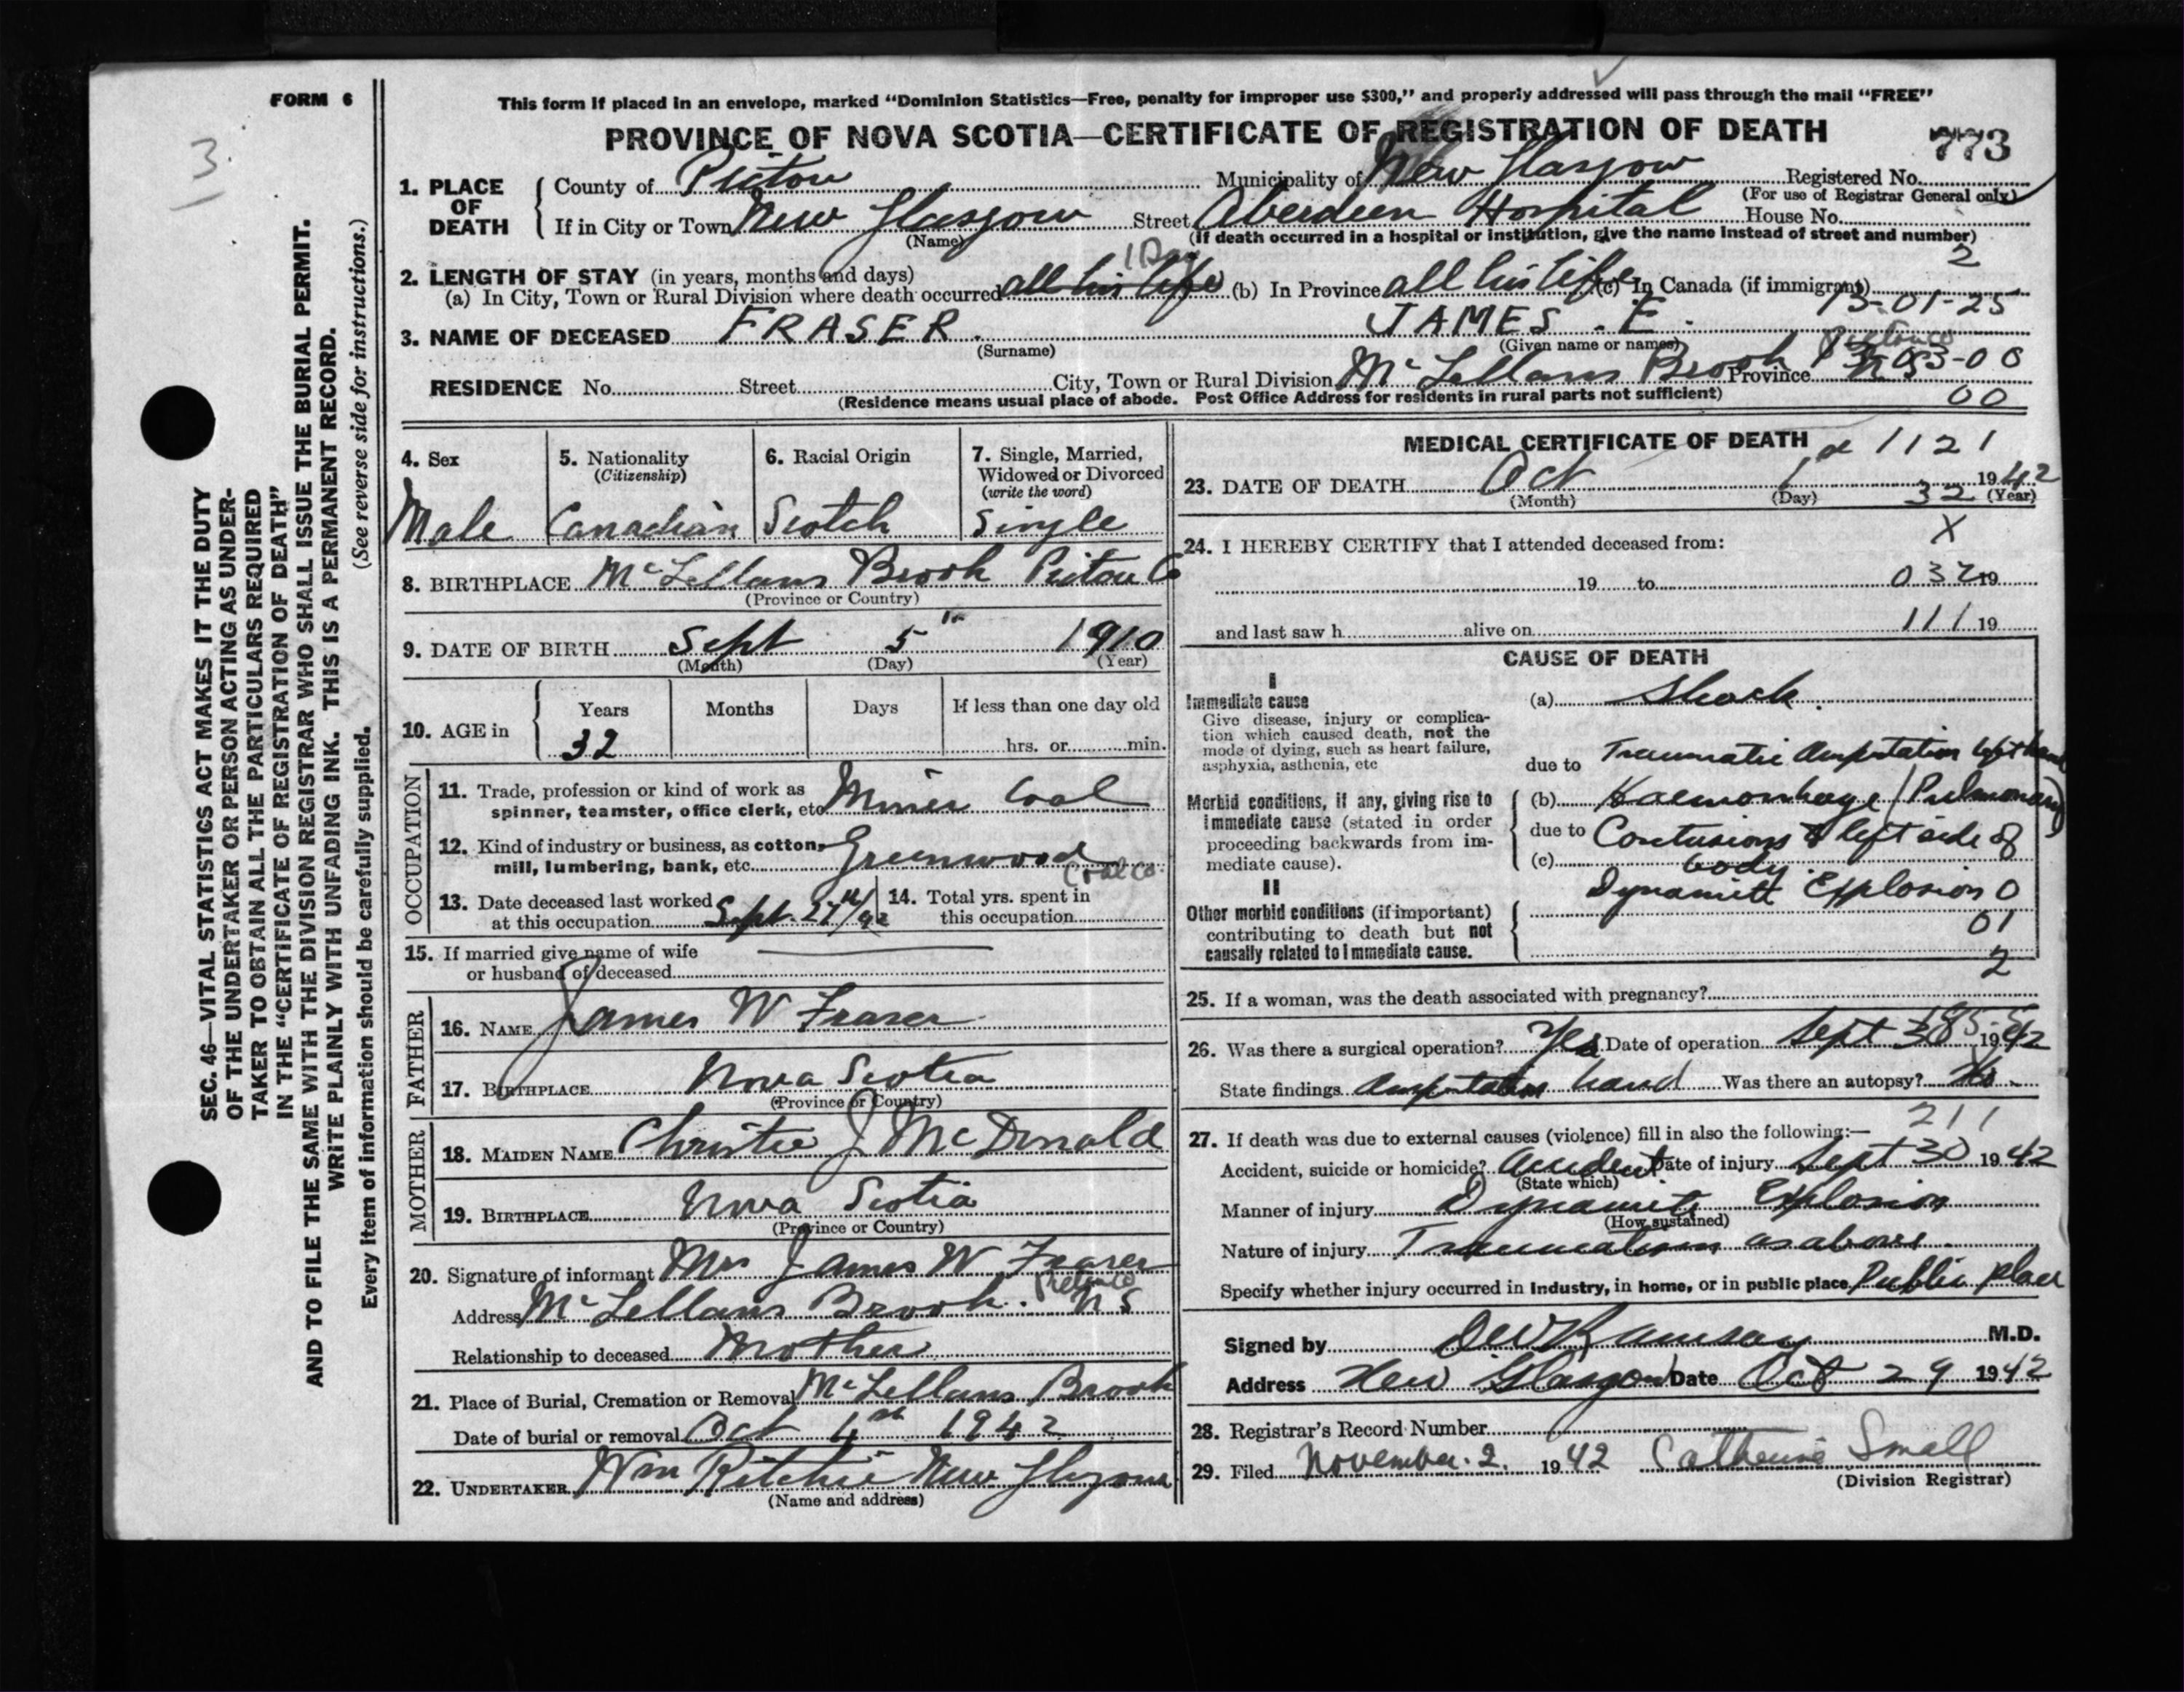 FORM 6
3
This form if placed in an envelope, marked “Dominion Statistics—Free, penalty for improper use $300,” and properly addressed will pass through the mail “FREE”
PROVINCE OF NOVA SCOTIA—CERTIFICATE OF REGISTRATION OF DEATH
773
1. PLACE OF DEATH { County of Pictou Municipality of New Glasgow Registered No.
(For use of Registrar General only)
If in City or Town New Glasgow Street Aberdeen Hospital House No.
(Name) (If death occurred in a hospital or institution, give the name instead of street and number)
1 Day 2
2. LENGTH OF STAY (in years, months and days)
(a) In City, Town or Rural Division where death occurred all his life (b) In Province all his life (c) In Canada (if immigrant)
13-01-25
3. NAME OF DECEASED FRASER. JAMES . E.
(Surname) (Given name or names)
Pictou Co 13-03-00
RESIDENCE No. Street City, Town or Rural Division McLellans Brook Province N S
(Residence means usual place of abode. Post Office Address for residents in rural parts not sufficient)
00
4. Sex 5. Nationality (Citizenship) 6. Racial Origin 7. Single, Married, Widowed or Divorced (write the word)
Male Canadian Scotch Single
8. BIRTHPLACE McLellans Brook Pictou Co
(Province or Country)
9. DATE OF BIRTH Sept 5th 1910
(Month) (Day) (Year)
10. AGE in { Years Months Days If less than one day old
32 hrs. or min.
OCCUPATION
11. Trade, profession or kind of work as
spinner, teamster, office clerk, etc. Miner Coal
12. Kind of industry or business, as cotton-
mill, lumbering, bank, etc. Greenwood Coal Co.
13. Date deceased last worked at this occupation Sept. 27th/42 14. Total yrs. spent in this occupation
15. If married give name of wife
or husband of deceased
FATHER
16. NAME James W Fraser
17. BIRTHPLACE Nova Scotia
(Province or Country)
MOTHER
18. MAIDEN NAME Christie J McDonald
19. BIRTHPLACE Nova Scotia
(Province or Country)
20. Signature of informant Mrs James W Fraser
Address McLellans Brook. Pictou Co N S
Relationship to deceased Mother
21. Place of Burial, Cremation or Removal McLellans Brook
Date of burial or removal Oct 1942
22. UNDERTAKER Wm Ritchie New Glasgow
(Name and address)
MEDICAL CERTIFICATE OF DEATH
1121
23. DATE OF DEATH Oct 1 1942
(Month) (Day) 32 (Year)
X
24. I HEREBY CERTIFY that I attended deceased from:
19 to 032 19
and last saw h alive on 111 19
CAUSE OF DEATH
I
Immediate cause
Give disease, injury or complica-
tion which caused death, not the
mode of dying, such as heart failure,
asphyxia, asthenia, etc
(a) Shock.
due to Traumatic Amputation left hand
Morbid conditions, if any, giving rise to
immediate cause (stated in order
proceeding backwards from im-
mediate cause).
(b) Haemorrhage (Pulmonary)
due to Contusions to left side of
(c) body.
Dynamite Explosion 0
II
Other morbid conditions (if important)
contributing to death but not
causally related to immediate cause.
01
2
25. If a woman, was the death associated with pregnancy?
26. Was there a surgical operation? Yes Date of operation Sept 30 1942
State findings Amputation hand Was there an autopsy? No.
211
27. If death was due to external causes (violence) fill in also the following:—
Accident, suicide or homicide? Accident Date of injury Sept 30 1942
(State which)
Manner of injury Dynamite Explosion
(How sustained)
Nature of injury Traumatism as above.
Specify whether injury occurred in industry, in home, or in public place Public place
Signed by Ramsay M.D.
Address New Glasgow Date Oct 29 1942
28. Registrar's Record Number
29. Filed November. 2. 1942 Catherine Small
(Division Registrar)
SEC. 46—VITAL STATISTICS ACT MAKES IT THE DUTY
OF THE UNDERTAKER OR PERSON ACTING AS UNDER-
TAKER TO OBTAIN ALL THE PARTICULARS REQUIRED
IN THE “CERTIFICATE OF REGISTRATION OF DEATH”
AND TO FILE THE SAME WITH THE DIVISION REGISTRAR WHO SHALL ISSUE THE BURIAL PERMIT.
WRITE PLAINLY WITH UNFADING INK. THIS IS A PERMANENT RECORD.
Every item of information should be carefully supplied. (See reverse side for instructions.)